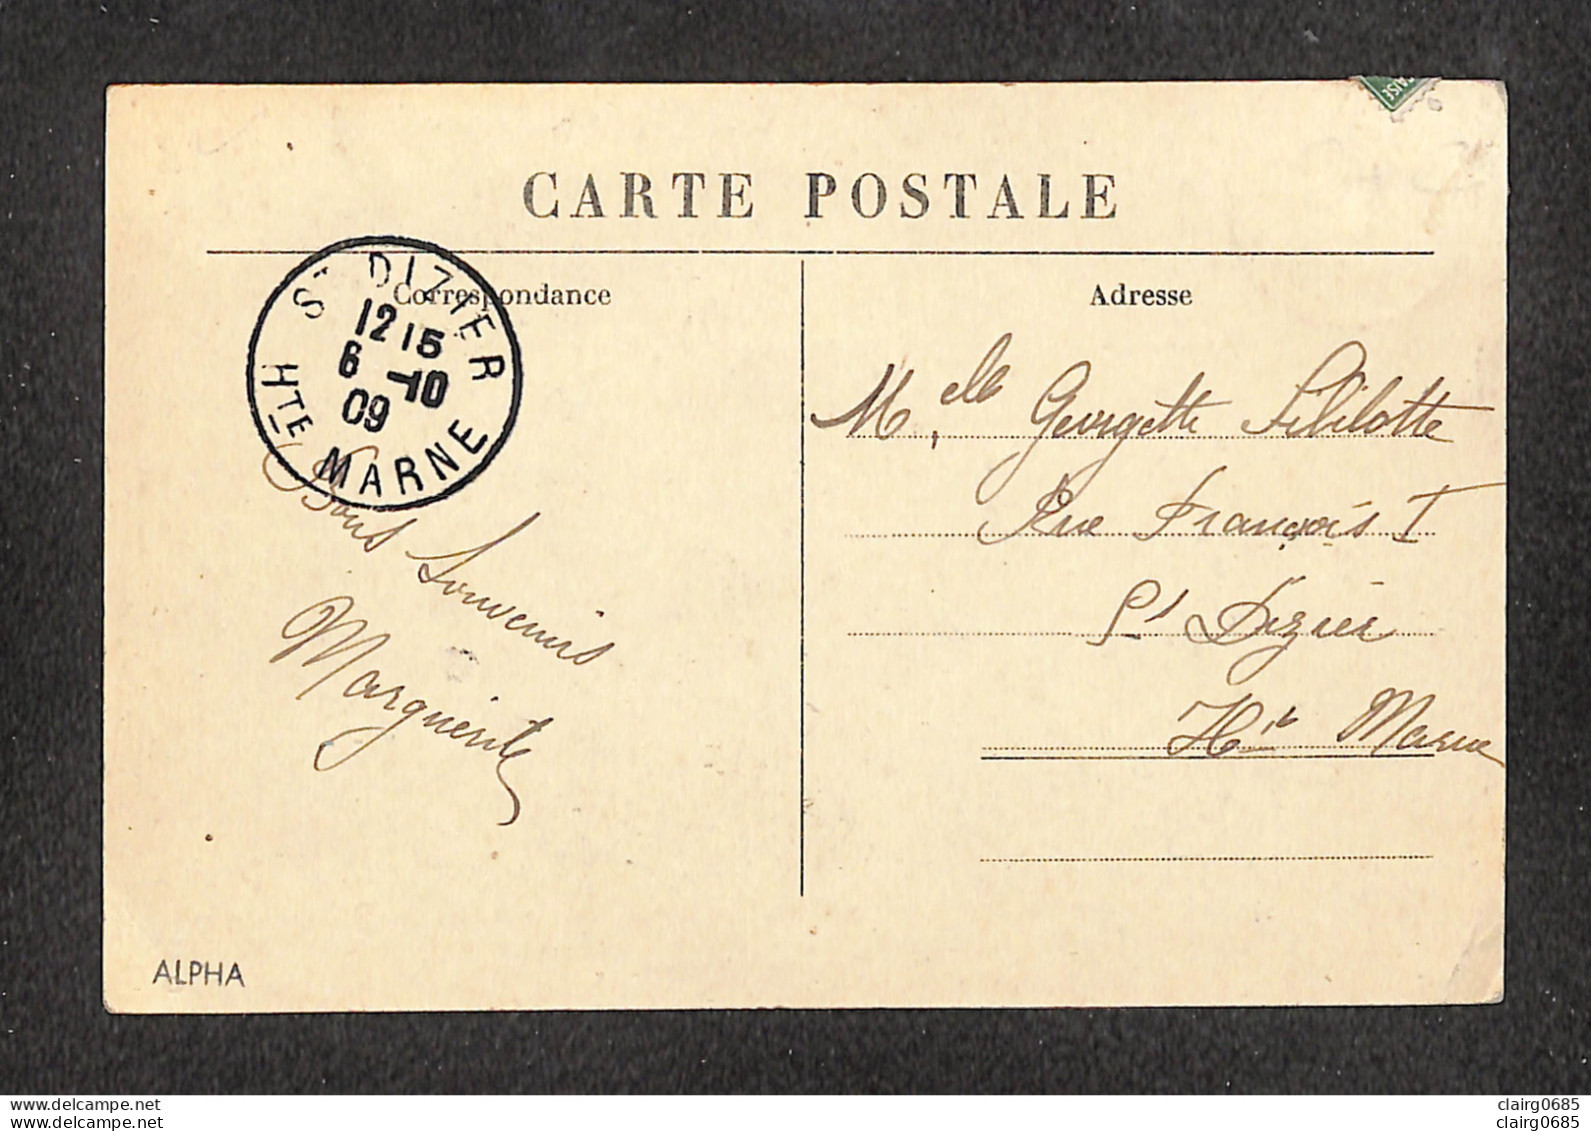 AISE
CARTE POSTALE
Correspondance
Adresse
ST DIZIER
12 15
6 -10
09
HTE MARNE
Bons Souvenirs
Marguerite
Melle Georgette Fililotte
Rue François I
St Dizier
Hte Marne
ALPHA
www.delcampe.net
clairg0685
www.delcampe.net
clairg0685